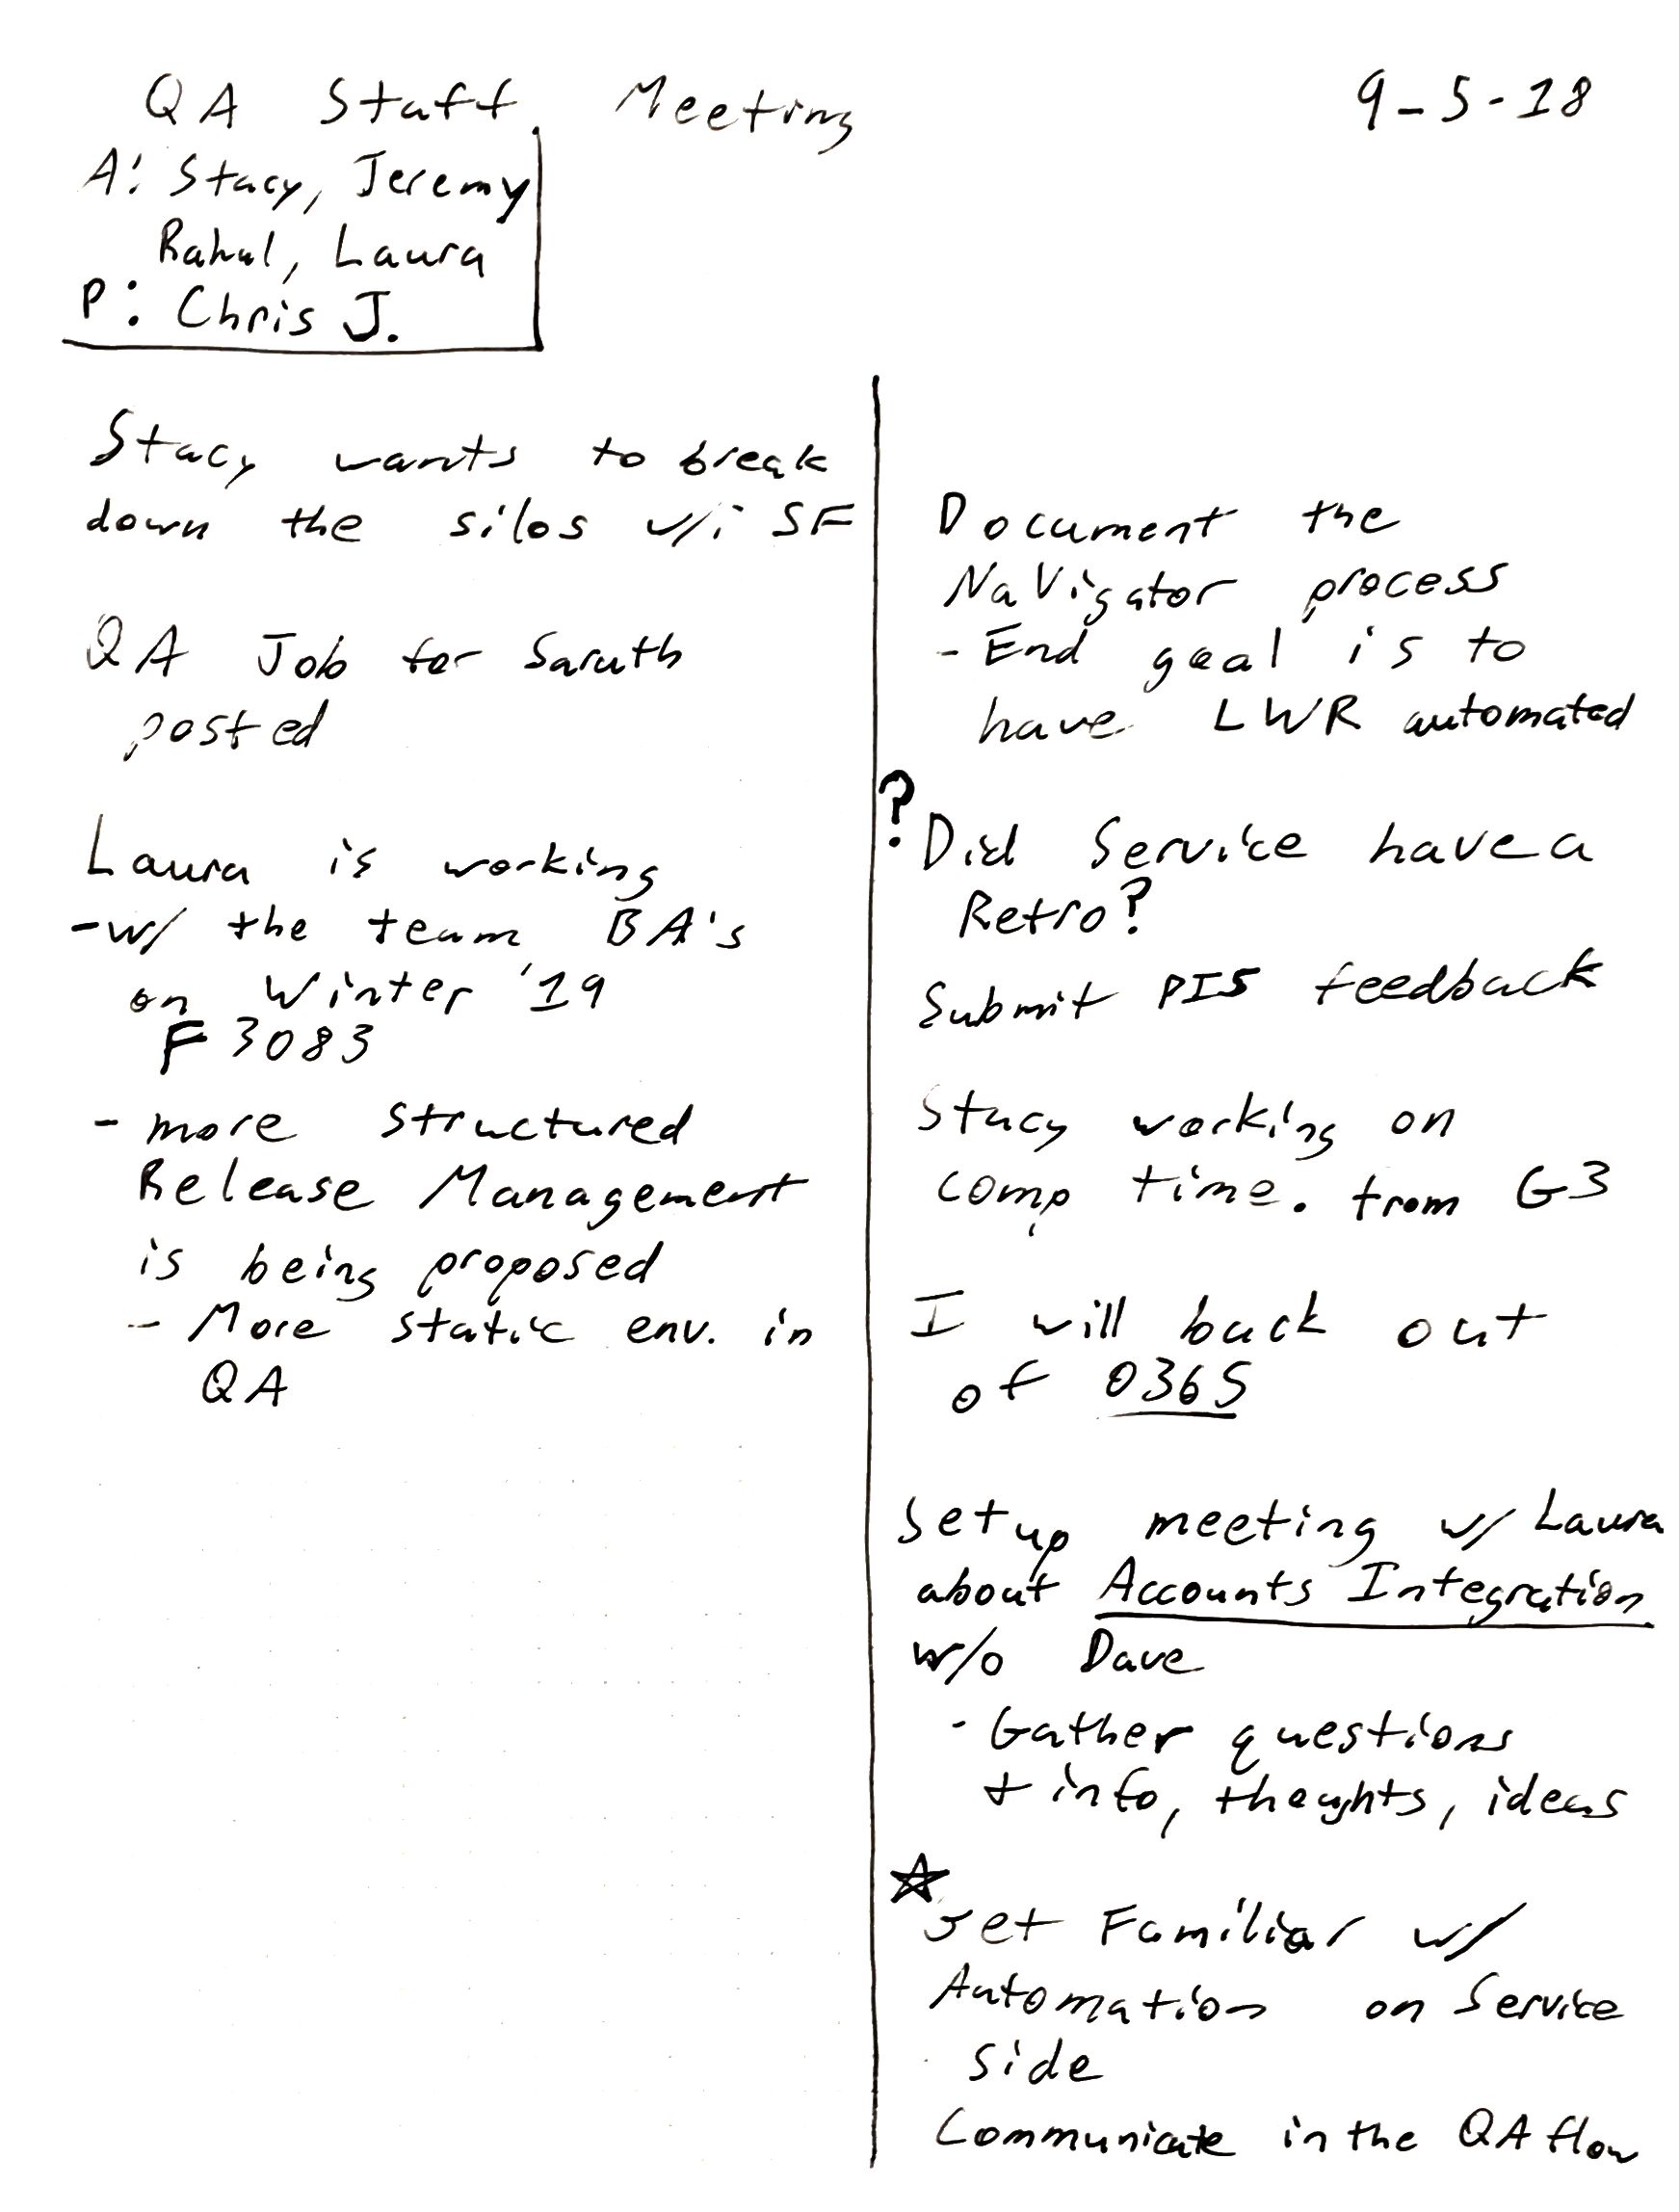 QA Staff Meeting
9-5-18
A: Stacy, Jeremy
Rahul, Laura
P: Chris J.
Stacy wants to break
down the silos w/i SF
QA Job for Sarath
posted
Laura is working
-w/ the team BA's
on Winter '19
F3083
- more structured
Release Management
is being proposed
- More static env. in
QA
Document the
NaVigator process
- End goal is to
have LWR automated
? Did Service have a
Retro?
Submit PI5 feedback
Stacy working on
comp time. from G3
I will back out
of O365
Setup meeting w/ Laura
about Accounts Integration
w/o Dave
- Gather questions
+ info, thoughts, ideas
☆ Get Familiar w/
Automation on Service
side
Communicate in the QA flow